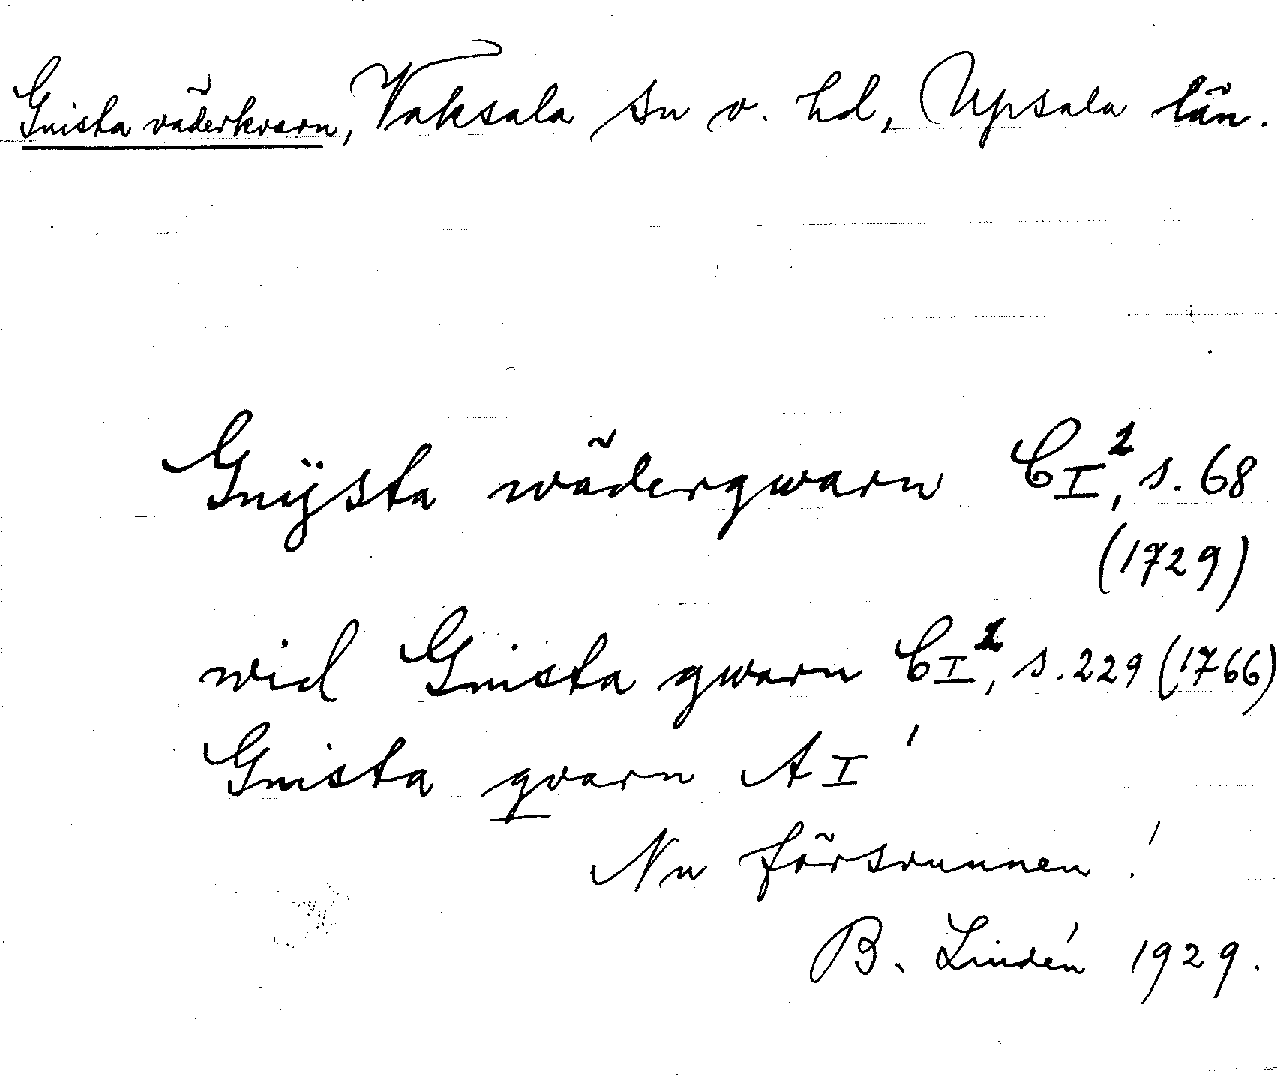 Gnista väderkvarn, Vaksala sn o. hd, Upsala län.
Gnÿsta wädergwarn CI², s. 68
(1729)
wid Gnista gwarn CI², s. 229 (1766)
Gnista qvarn AI'
Nu försvunnen!
B. Lindén 1929.